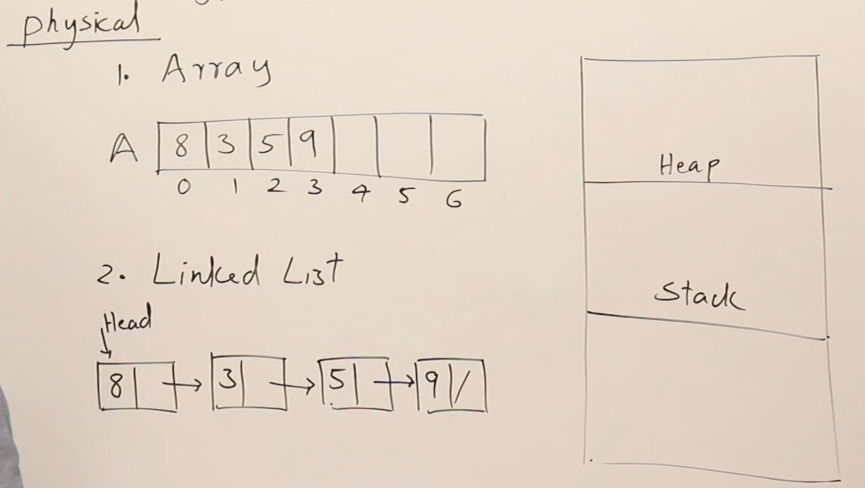 Physical
1. Array
A 8 3 5 9
0 1 2 3 4 5 6
2. Linked List
Head
8 3 5 9 /
Heap
Stack